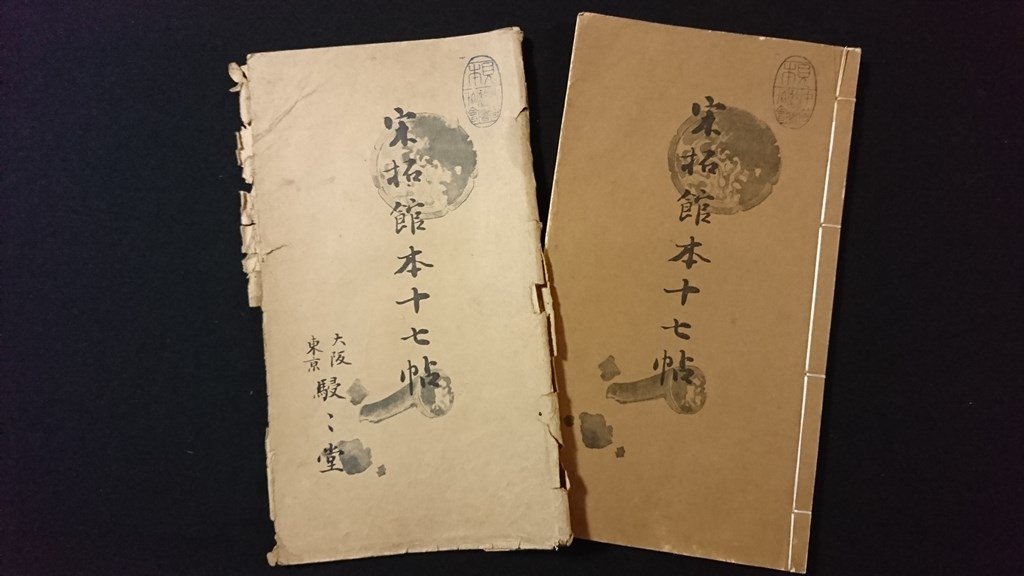 宋拓館本十七帖
大阪
東京
駸々堂
宋拓館本十七帖